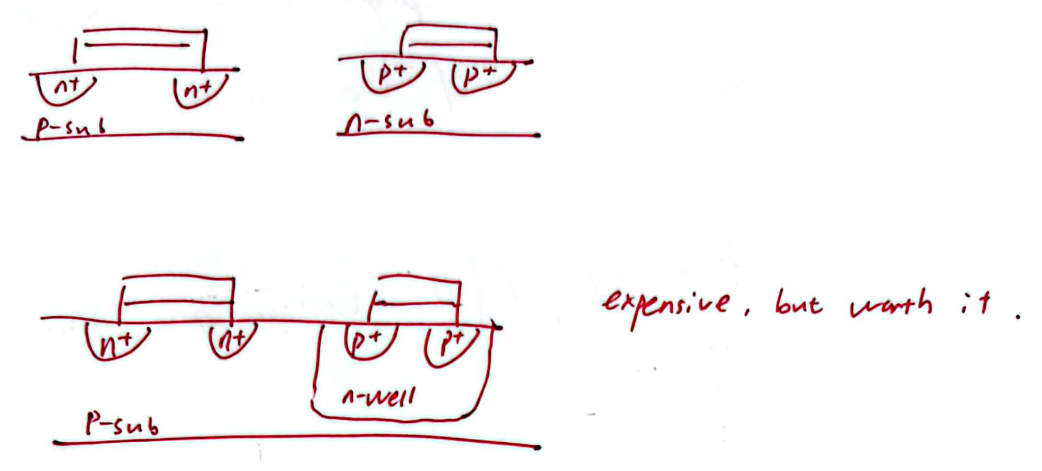 n+ n+
p-sub
p+ p+
n-sub
n+ n+ p+ p+
n-well
p-sub
expensive, but worth it.